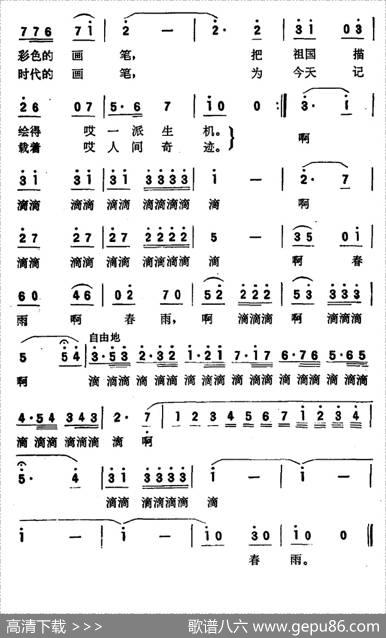 776 7i 2 — 2· 2 3i 03
彩色的 画 笔, 把 祖国 描
时代的 画 笔, 为 今天 记
26 07 5·6 7 i0 0 :‖ 3· i
绘得 哎 一派 生 机。 啊
载着 哎 人间 奇 迹。
3i 3i 3i 3333 i — 2· 7
滴滴 滴滴 滴滴 滴滴滴滴 滴 啊
27 27 27 2222 5 — 35 0i
滴滴 滴滴 滴滴 滴滴滴滴 滴 啊 春
60 46 02 70 52 222 53 333
雨 啊 春 雨, 啊 滴滴滴 啊 滴滴滴
自由地
5 54 3·53 2·32 1·21 7·17 6·76 5·65
啊 滴 滴滴 滴 滴滴 滴 滴滴 滴 滴滴 滴 滴滴 滴 滴滴
4·54 343 2· 7 123 456 7i234
滴 滴滴 滴滴滴 滴 啊
5· 4 3i 3333 i — i —
滴滴 滴滴滴滴 滴
i — i — i0 30 i0 0 ‖
春 雨。
高清下载 >>> 歌谱八六 www.gepu86.com